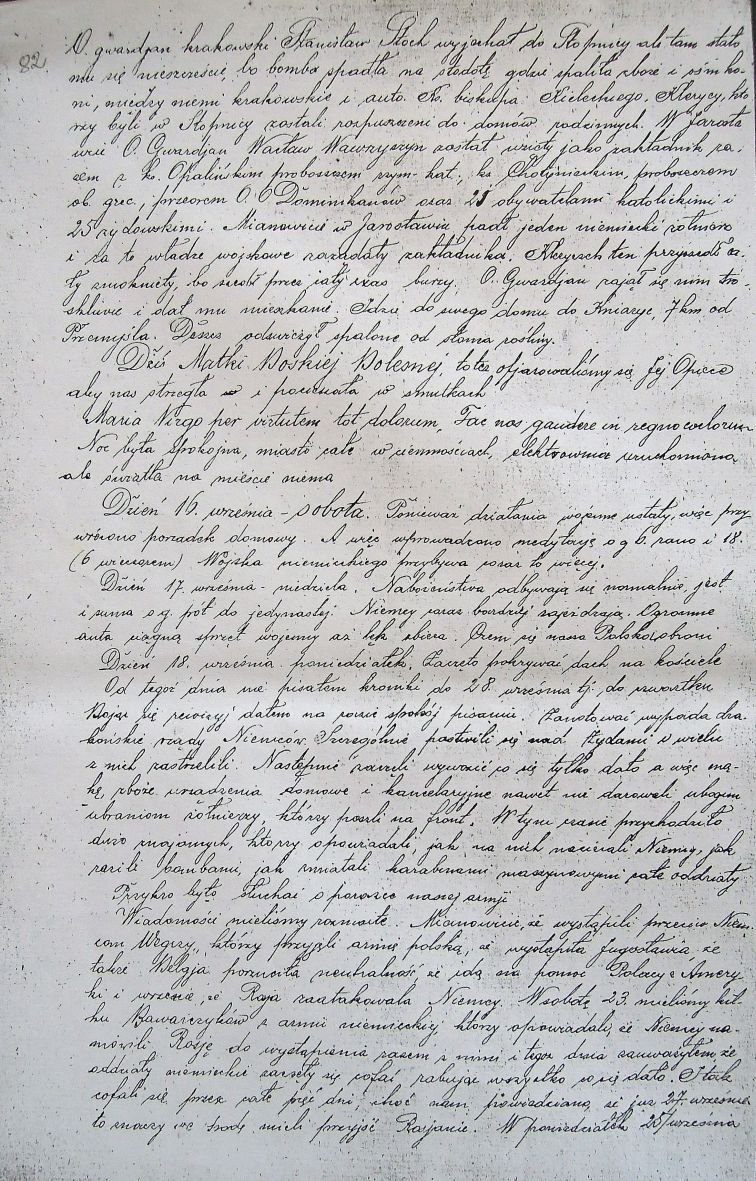 82
O. gwardjan krakowski Stanisław Stoch wyjechał do Stopnicy ale tam stało
mu się nieszczęście, bo bomba spadła na stodołę, gdzie spaliła zboże i ośm ko-
ni, między niemi krakowskie i auto. Ks. biskupa Kieleckiego. Klerycy, któ
rzy byli w Stopnicy zostali rozpuszczeni do domów rodzinnych. W Jarosła
wiu O. Gwardjan Wacław Wawrzyszyn został wzięty jako zakładnik ra-
zem z ks. Opalińskim proboszczem rzym-kat., ks. Chotynieckim, proboszczem
ob. grec., przeorem O. O Dominikanów oraz 21 obywatelami katolickimi i
25 żydowskimi. Mianowicie w Jarosławiu padł jeden niemiecki żołnierz
i za to władze wojskowe zażądały zakładnika. Kleryk ten przyszedł ca-
ły zmoknięty, bo szedł przez cały czas burzy. O. Gwardjan zajął się nim tro-
skliwie i dał mu mieszkanie. Idzie do swego domu do Kniażyc, 7 km od
Przemyśla. Deszcz odświeżył spalone od słońca rośliny.
Dziś Matki Boskiej Bolesnej, toteż ofiarowaliśmy się Jej Opiece
aby nas strzegła i pocieszała w smutkach
Maria Virgo per virtutem tot dolorum, Fac nos gaudere in regno coelorum
Noc była spokojna, miasto całe w ciemnościach, elektrownia uruchomiona,
ale światła na mieście niema
Dzień 16. września - sobota. Ponieważ działania wojenne ustały, więc przy
wrócono porządek domowy. A więc wprowadzono medytację o g 6. rano i 18.
(6 wieczorem) Wojska niemieckiego przybywa coraz to więcej.
Dzień 17. września - niedziela. Nabożeństwa odbywają się normalnie, jest
i suma o g. pół do jedynastej. Niemcy coraz bardziej zajeżdżają. Ogromne
auta ciągną sprzęt wojenny aż lęk zbiera. Czem się nasza Polska obroni
Dzień 18. września. poniedziałek. Zaczęto pokrywać dach na kościele
Od tegoż dnia nie pisałem kroniki do 28. września tj. do czwartku
Bojąc się rewizyj dałem na razie spokój pisaniu. Zanotować wypada dra-
końskie rządy Niemców. Szczególnie pastwili się nad Żydami i wielu
z nich zastrzelili. Następnie zaczęli wywozić co się tylko dało a więc mą-
kę, zboże, urządzenia domowe i kancelaryjne nawet nie darowali ubogim
ubraniom żołnierzy, którzy poszli na front. W tym czasie przychodziło
dużo znajomych, którzy opowiadali, jak na nich nacierali Niemcy, jak
razili bombami, jak zmiatali karabinami maszynowymi całe oddziały
Przykro było słuchać o porażce naszej armji
Wiadomości mieliśmy rozmaite. Mianowicie, że wystąpili przeciw Niem-
com Węgrzy, którzy przyjęli armię polską, że wystąpiła Jugosławia, że
także Belgja porzuciła neutralność, że idą na pomoc Polacy z Amery
ki i wreszcie, że Rosja zaatakowała Niemcy. W sobotę 23. mieliśmy kil-
ku Bawarczyków z armii niemieckiej, którzy opowiadali, że Niemcy na-
mówili Rosję do wystąpienia razem z nimi i tegoż dnia zauważyłem, że
oddziały niemieckie zaczęły się cofać rabując wszystko co się dało. I tak
cofali się przez całe pięć dni, choć nam powiedziano, że już 27. września
to znaczy we środę mieli przyjść Rosjanie. W poniedziałek 25 września